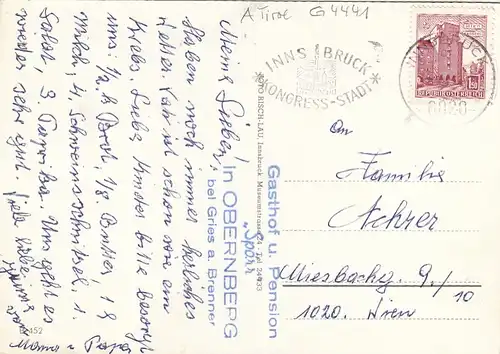 A Tirol G4441
INNSBRUCK
KONGRESS-STADT
REPUBLIK ÖSTERREICH
6020
Meine Lieben!
Haben noch immer herrliches
Wetter. Vati ist schon wie ein
Krebs. Liebe Kinder bitte besorgt
uns: 1/2 k Brot, 1/8 Butter, 1 l
Milch, 4 Schweinsschnitzel, 1
Salat, 3 Paprika. Uns geht es
wieder sehr gut. Viele liebe
Mama u Papa
452
Gasthof u. Pension
„Spörr“
in OBERNBERG
bei Gries a. Brenner
FOTO RISCH-LAU, Innsbruck, Museumstrasse 24, Tel. 24933
An
Familie
Achrer
Miesbachg. 9/
10
1020. Wien